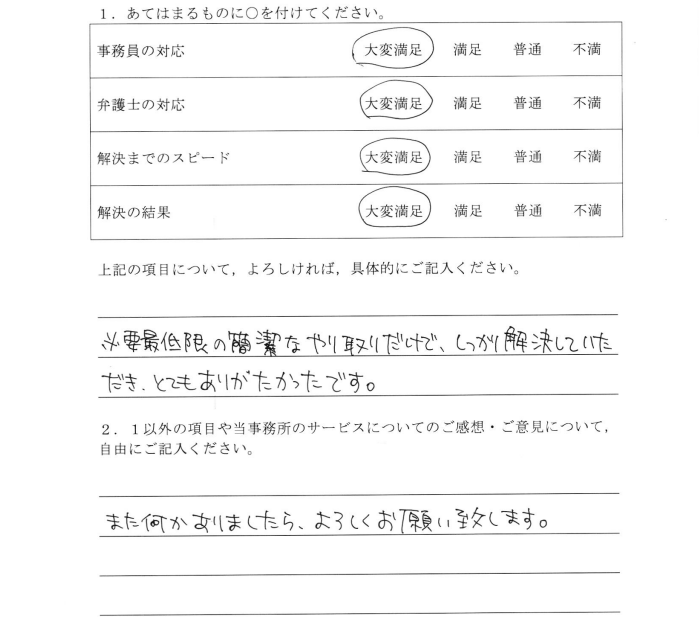 １．あてはまるものに○を付けてください。
事務員の対応 大変満足 満足 普通 不満
弁護士の対応 大変満足 満足 普通 不満
解決までのスピード 大変満足 満足 普通 不満
解決の結果 大変満足 満足 普通 不満
上記の項目について，よろしければ，具体的にご記入ください。
必要最低限の簡潔なやり取りだけで、しっかり解決していた
だき、とてもありがたかったです。
２．１以外の項目や当事務所のサービスについてのご感想・ご意見について，
自由にご記入ください。
また何かありましたら、よろしくお願い致します。